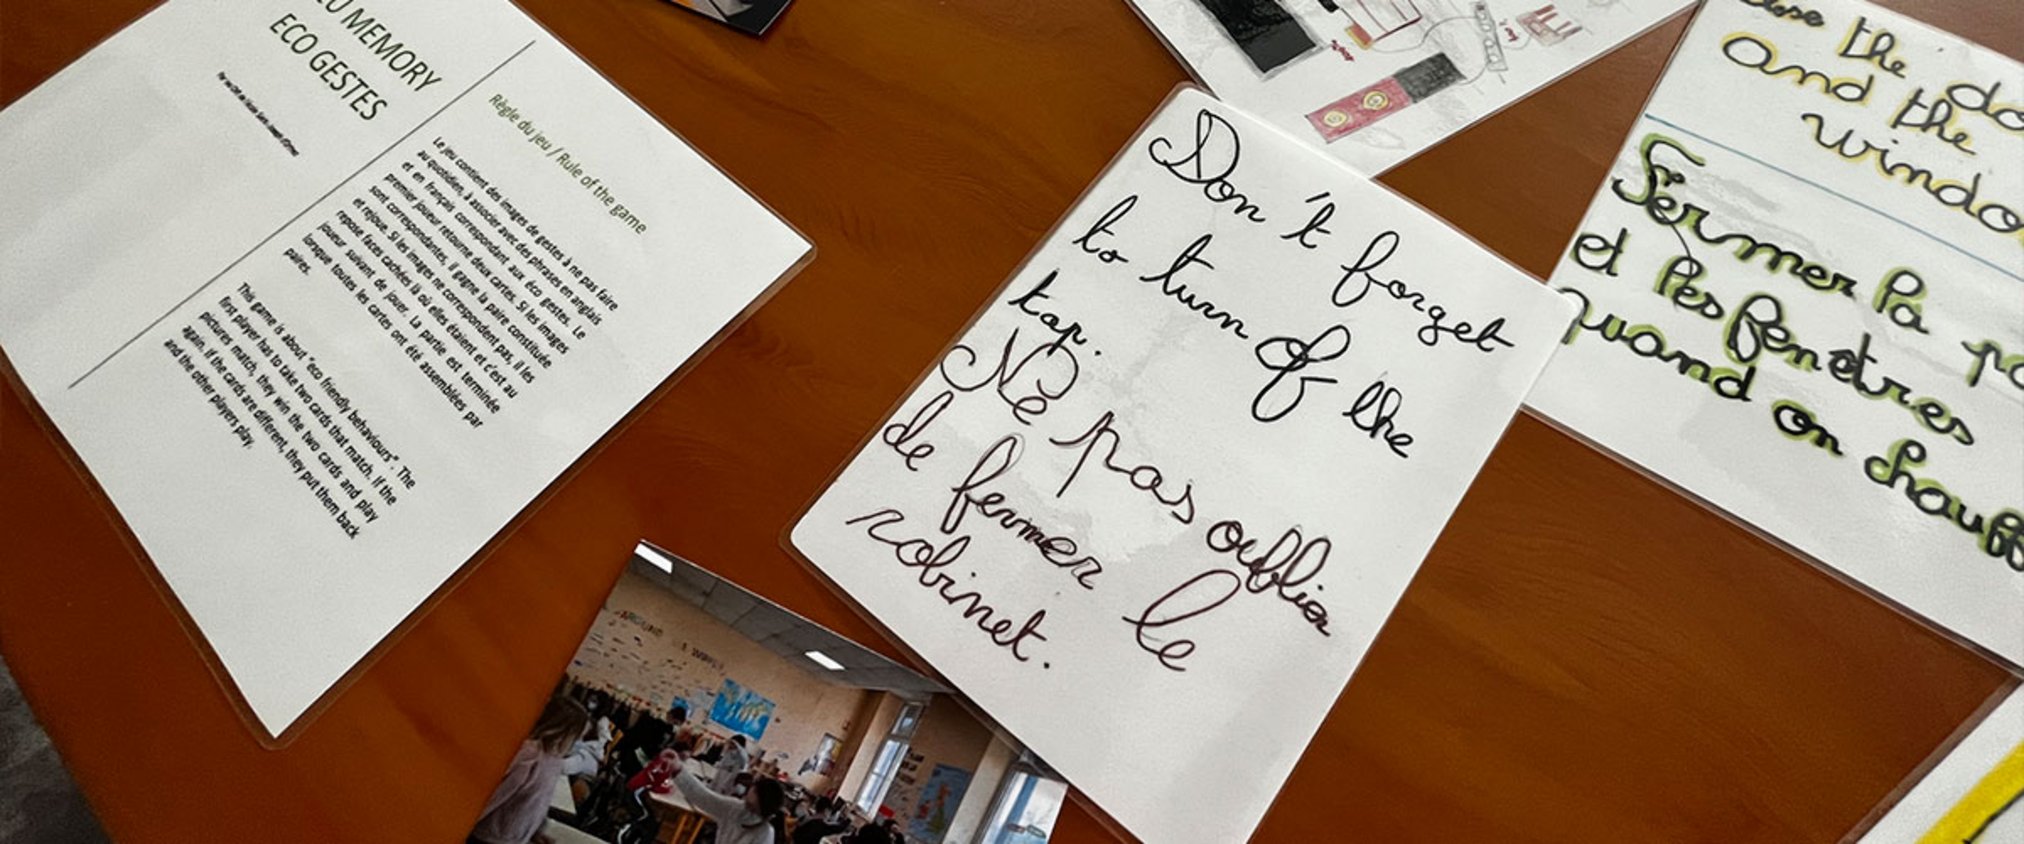 MEMORY
ECO GESTES
Règle du jeu / Rule of the game
Le jeu contient des images de gestes à ne pas faire
au quotidien, à associer avec des phrases en anglais
et en français correspondant aux éco gestes. Le
premier joueur retourne deux cartes. Si les images
sont correspondantes, il gagne la paire constituée
et rejoue. Si les images ne correspondent pas, il les
repose faces cachées là où elles étaient et c'est au
joueur suivant de jouer. La partie est terminée
lorsque toutes les cartes ont été assemblées par
paires.
This game is about "eco friendly behaviours". The
first player has to take two cards that match. If the
pictures match, they win the two cards and play
again. If the cards are different, they put them back
and the other players play.
Don't forget
to turn of the
tap.
Ne pas oublier
de fermer le
robinet.
the
and the
Fermer la
et les fenêtres
quand on